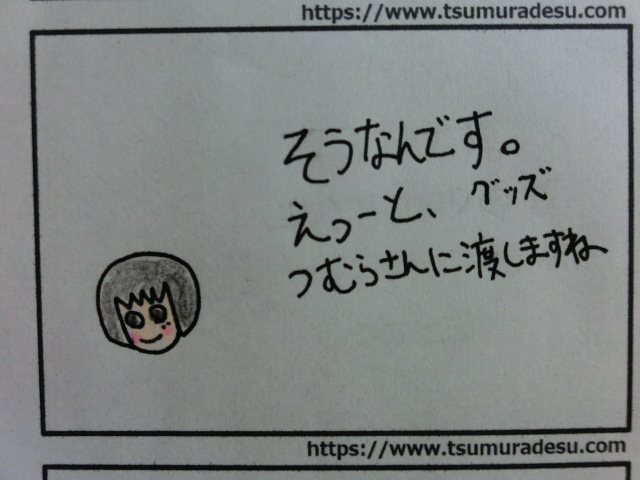 https://www.tsumuradesu.com
そうなんです。
えっーと、グッズ
つむらさんに渡しますね
https://www.tsumuradesu.com